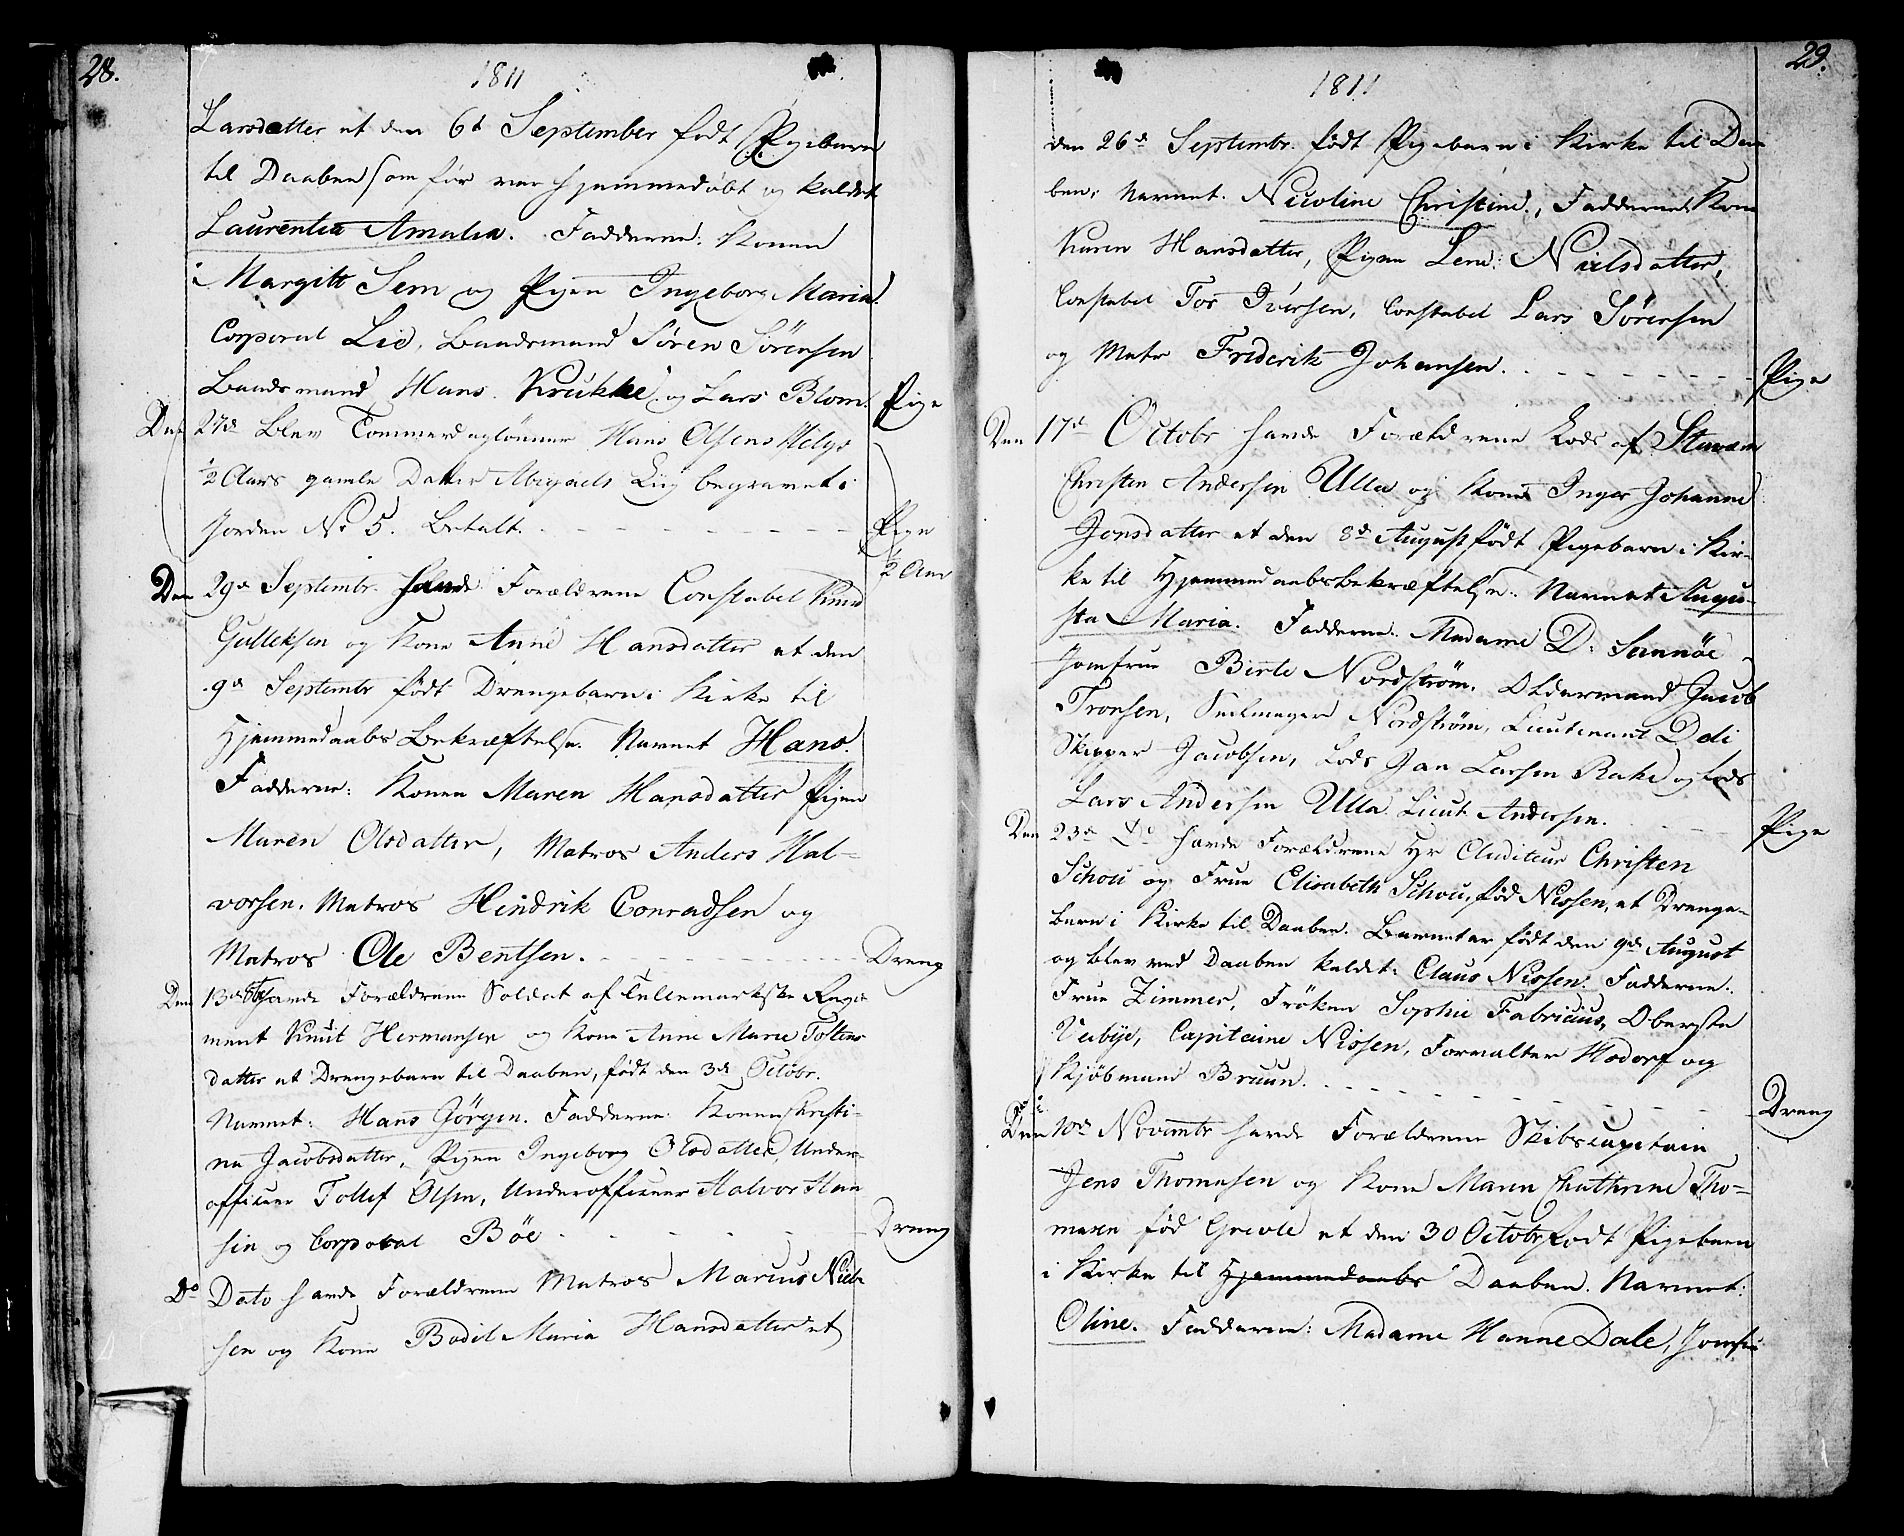 28.
1811
Larsdatter et den 6d September født Pigebarn
til Daaben som før var hjemmedøbt og kaldet
Laurentia Amalia. Fadderne: Konen
Margitt Sem og Pigen Ingeborg Maria.
Corporal Lie, Baadsmand Søren Sørensen
Baadsmand Hans Krukke og Lars Blom. Pige
Den 27de blev Tømmerdaglønner Hans Olsens
1/2 Aars gamle Datter Abigaels Liig begravet i
Jorden No 5. Betalt. Pige 1/2 Aar
Den 29de Septembr havde Forældrene Constabel Knud
Gulleksen og Kone Anne Hansdatter et den
9de Septembr født Drengebarn i Kirke til
Hjemmedaabs Bekræftelse. Navnet Hans.
Fadderne: Konen Maren Hansdatter Pigen
Maren Olsdatter, Matros Anders Hal-
vorsen, Matros Hindrik Conradsen og
Matros Ole Bentsen. Dreng
Den 13de havde Forældrene Soldat af Tellemarkske Regi-
ment Knut Hermansen og Kone Anne Marie Toltens
datter et Drengebarn til Daaben, født den 3de Octobr.
Navnet: Hans Jörgen. Fadderne: Konen Christi-
ne Jacobsdatter, Pigen Ingeborg Olsdatter, Under-
officeer Tollef Olsen, Underofficeer Halvor Han
sen og Corporal Böe Dreng
Do Dato havde Forældrene Matros Marcus Niel-
sen og Kone Bodil Maria Hansdatter et
29.
1811
den 26de Septembr. født Pigebarn i Kirke til Daa
ben, Navnet. Nicoline Christine, Fadderne: Kone
Karen Hansdatter, Pigen Lene Nielsdatter,
Constabel Tor Iversen, Constabel Lars Sörensen
og Matr Friderik Johansen. Pige
Den 17de Octobr havde Forældrene Lods af Staværn
Christen Andersen Ulla og Kone Inger Johanne
Jonsdatter et den 8de August født Pigebarn i Kir-
ke til Hjemmedaabsbekræftelse. Navnet Augu-
sta Maria. Fadderne. Madame D. Sannöe
Jomfrue Birte Nordström, Oldermand Jacob
Tronsen, Seilmager Nordström, Lieutenant Dedi
Skipper Jacobsen, Lods Jan Larsen Rake og Lods
Lars Andersen Ulla Lieut Andersen. Pige
Den 23de Do havde Forældrene Hr Auditeur Christen
Schou og Frue Elisabeth Schou, fød Nissen, et Drenge-
barn i Kirke til Daaben. Barnet er født den 9de August
og blev ved Daaben kaldet: Claus Nissen. Fadderne:
Frue Zimmer, Fröken Sophie Fabricius, Oberste
Veibye, Capitaine Nissen, Forvalter Hodorf og
Kjöbmand Bruun. Dreng
Den 10de Novembr havde Forældrene Skibscapitain
Jens Thomesen og Kone Maren Chathrine Tho-
mesen fød Greole et den 30 Octobr født Pigebarn
i Kirke til Hjemmedaabs Daaben. Navnet:
Oline. Fadderne: Madame Hanne Dale, Jomfru